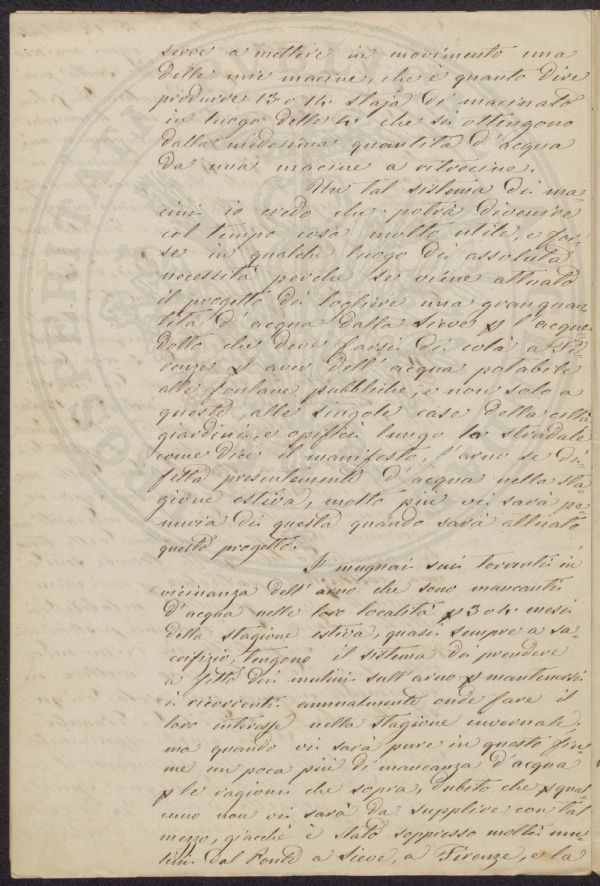 serve a mettere in movimento una
delle mie macine, che è quanto dire
produrre 13 o 14 staja di macinato
in luogo delle 4 che si ottengono
dalla medesima quantità d'acqua
da una macine a ritrecine.
Un tal sistema di ma-
cini io credo che potrà divenire
col tempo cosa molto utile, e for-
se in qualche luogo di assoluta
necessità perchè se viene attuato
il progetto di togliere una gran quan-
tità d'acqua dalla Sieve p l'acque-
dotto che deve farsi di colà a Fi-
renze p aver dell'acqua potabile
alle fontane pubbliche, e non solo a
queste, alle singole case della città
giardini, e opifici lungo lo stradale
come dice il manifesto, l'arno se di-
fetta presentemente d'acqua nella sta-
gione estiva, molto più vi sarà pe-
nuria di questa quando sarà attuato
questo progetto.
I mugnai sui torrenti in
vicinanza dell'arno che sono mancanti
d'acqua nelle loro località p 3 o 4 mesi
della stagione estiva, quasi sempre a sa-
crifizio, tengono il sistema di prendere
a fitto dei mulini sull'arno p mantenersi
i ricorrenti annualmente onde fare il
loro interesse nella stagione invernale,
ma quando vi sarà pure in questo fiu-
me un poca più di mancanza d'acqua
p le ragioni che sopra, dubito che p qual-
cuno non vi sarà da supplire con tal
mezzo, giacchè è stato soppresso molti mu-
lini dal Ponte a Sieve, a Firenze, e la